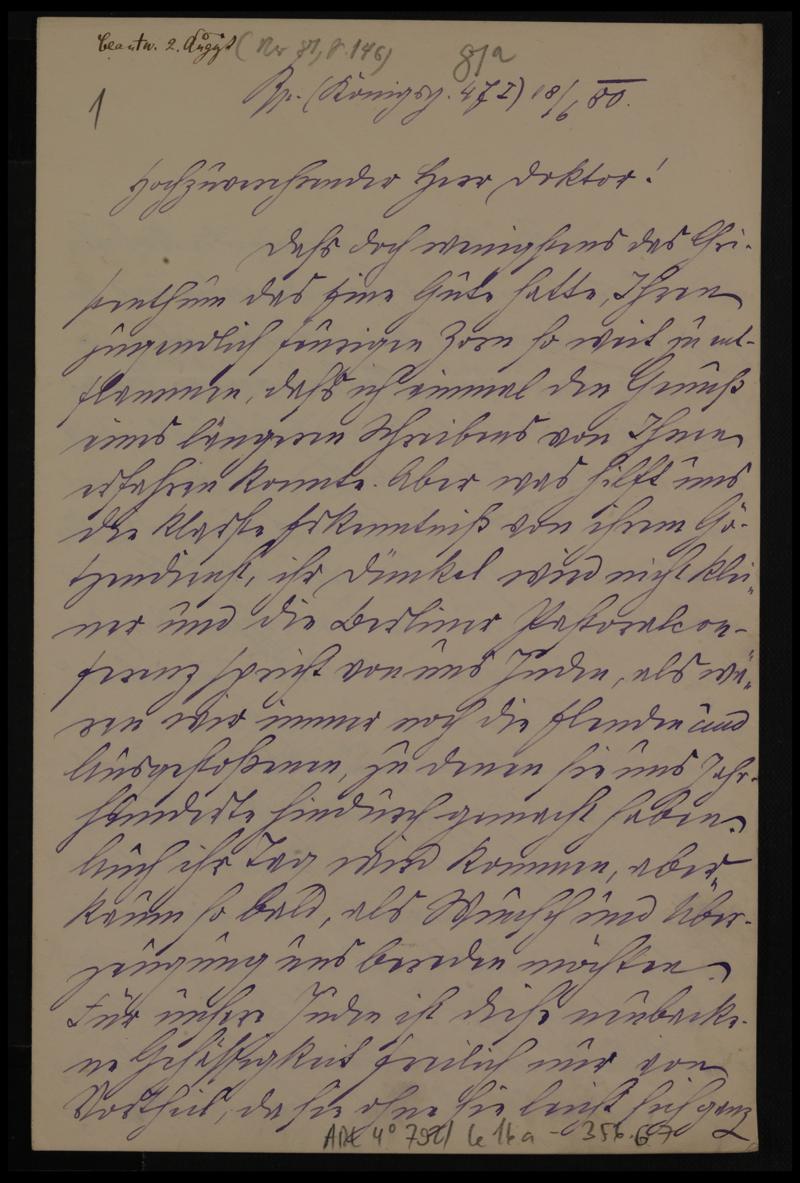 beantw. 2. August (Nr 81, S. 146) 81a
1
Bp. (Königsg. 47 I) 18/6 80.
Hochzuverehrender Herr Doktor!
Dass doch wenigstens das Chri-
stenthum das eine Gute hatte, Ihren
jugendlich feurigen Zorn so weit zu ent-
flammen, dass ich einmal den Genuß
eines längeren Schreibens von Ihnen
erfahren konnte. Aber was hilft uns
die klarste Erkenntniß von ihrem Gö-
tzendienst, ihr Dünkel wird nicht klei-
ner und die Berliner Pastoralcon-
ferenz spricht von uns Juden, als wä-
ren wir immer noch die Elenden und
Ausgestoßenen, zu denen sie uns Jahr-
hunderte hindurch gemacht haben.
Auch ihr Tag wird kommen, aber
kaum so bald, als Wunsch und Über-
zeugung uns bereden möchten.
Für unsere Juden ist diese neubacke-
ne Gehässigkeit freilich nur von
Vortheil, da sie ohne sie leicht sich ganz